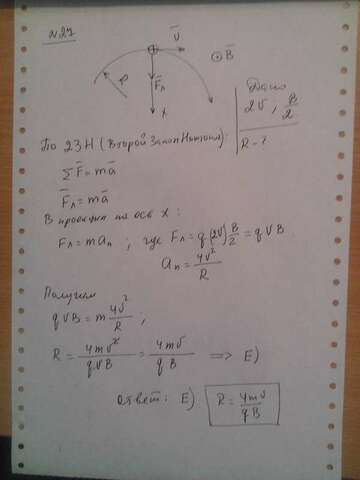 №27
V̄
⊙ B̄
R
F̄л
x
Дано
2V ; B/2
R - ?
По 2ЗН (Второй Закон Ньютона):
∑F̄ = mā
F̄л = mā
В проекции на ось x:
Fл = maₙ ; где Fл = q(2V)B/2 = qVB
aₙ = 4V²/R
Получим
qVB = m 4V²/R ;
R = 4mV²/qVB = 4mV/qB => E)
Ответ: E) R = 4mV/qB